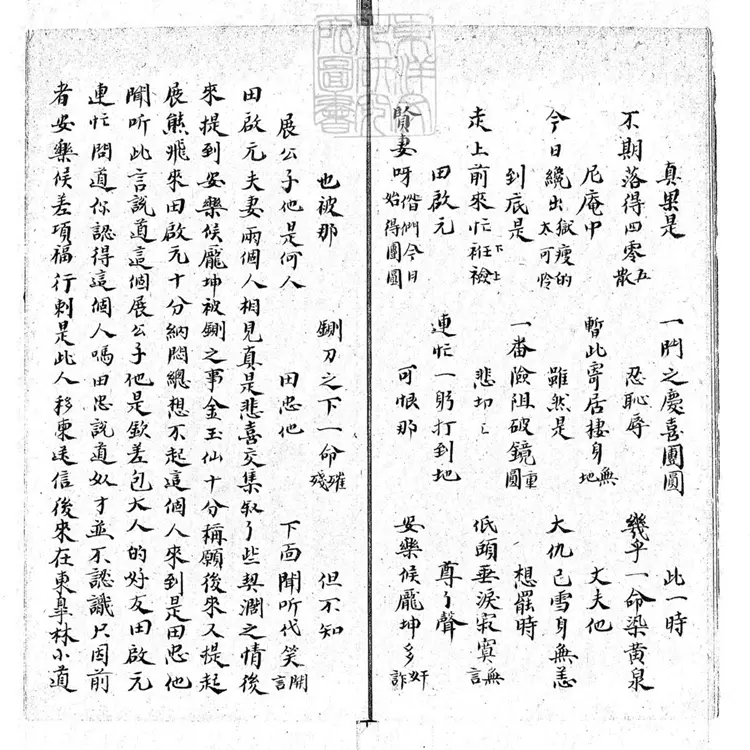 真果是　一門之慶喜團圓　此一時
不期落得四零五散　忍恥辱　幾乎一命染黃泉
尼庵中　暫此寄居棲身無地　丈夫他
今日纔出獄瘦的太可怜　雖然是　大仇已雪身無恙
到底是　一番險阻破鏡重圓　想罷時
走上前來忙袵襝下上　悲切〻　低頭垂淚寂寞無言
田啟元　連忙一躬打到地　尊了聲
賢妻呀偺們今日始得團圓　可恨那　安樂候龐坤多奸詐
也被那　鍘刀之下一命摧殘　但不知
展公子他是何人　田忠他　下面聞听代笑開言
田啟元夫妻兩個人相見真是悲喜交集叙了些契濶之情後
來提到安樂候龐坤被鍘之事金玉仙十分稱願後來又提起
展熊飛來田啟元十分納悶總想不起這個人來到是田忠他
聞听此言說道這個展公子他是欽差包大人的好友田啟元
連忙問道你認得這個人嗎田忠說道奴才並不認識只因前
者安樂候差項福行刺是此人移柬送信後來在東皐林小道
東洋文化研究所圖書